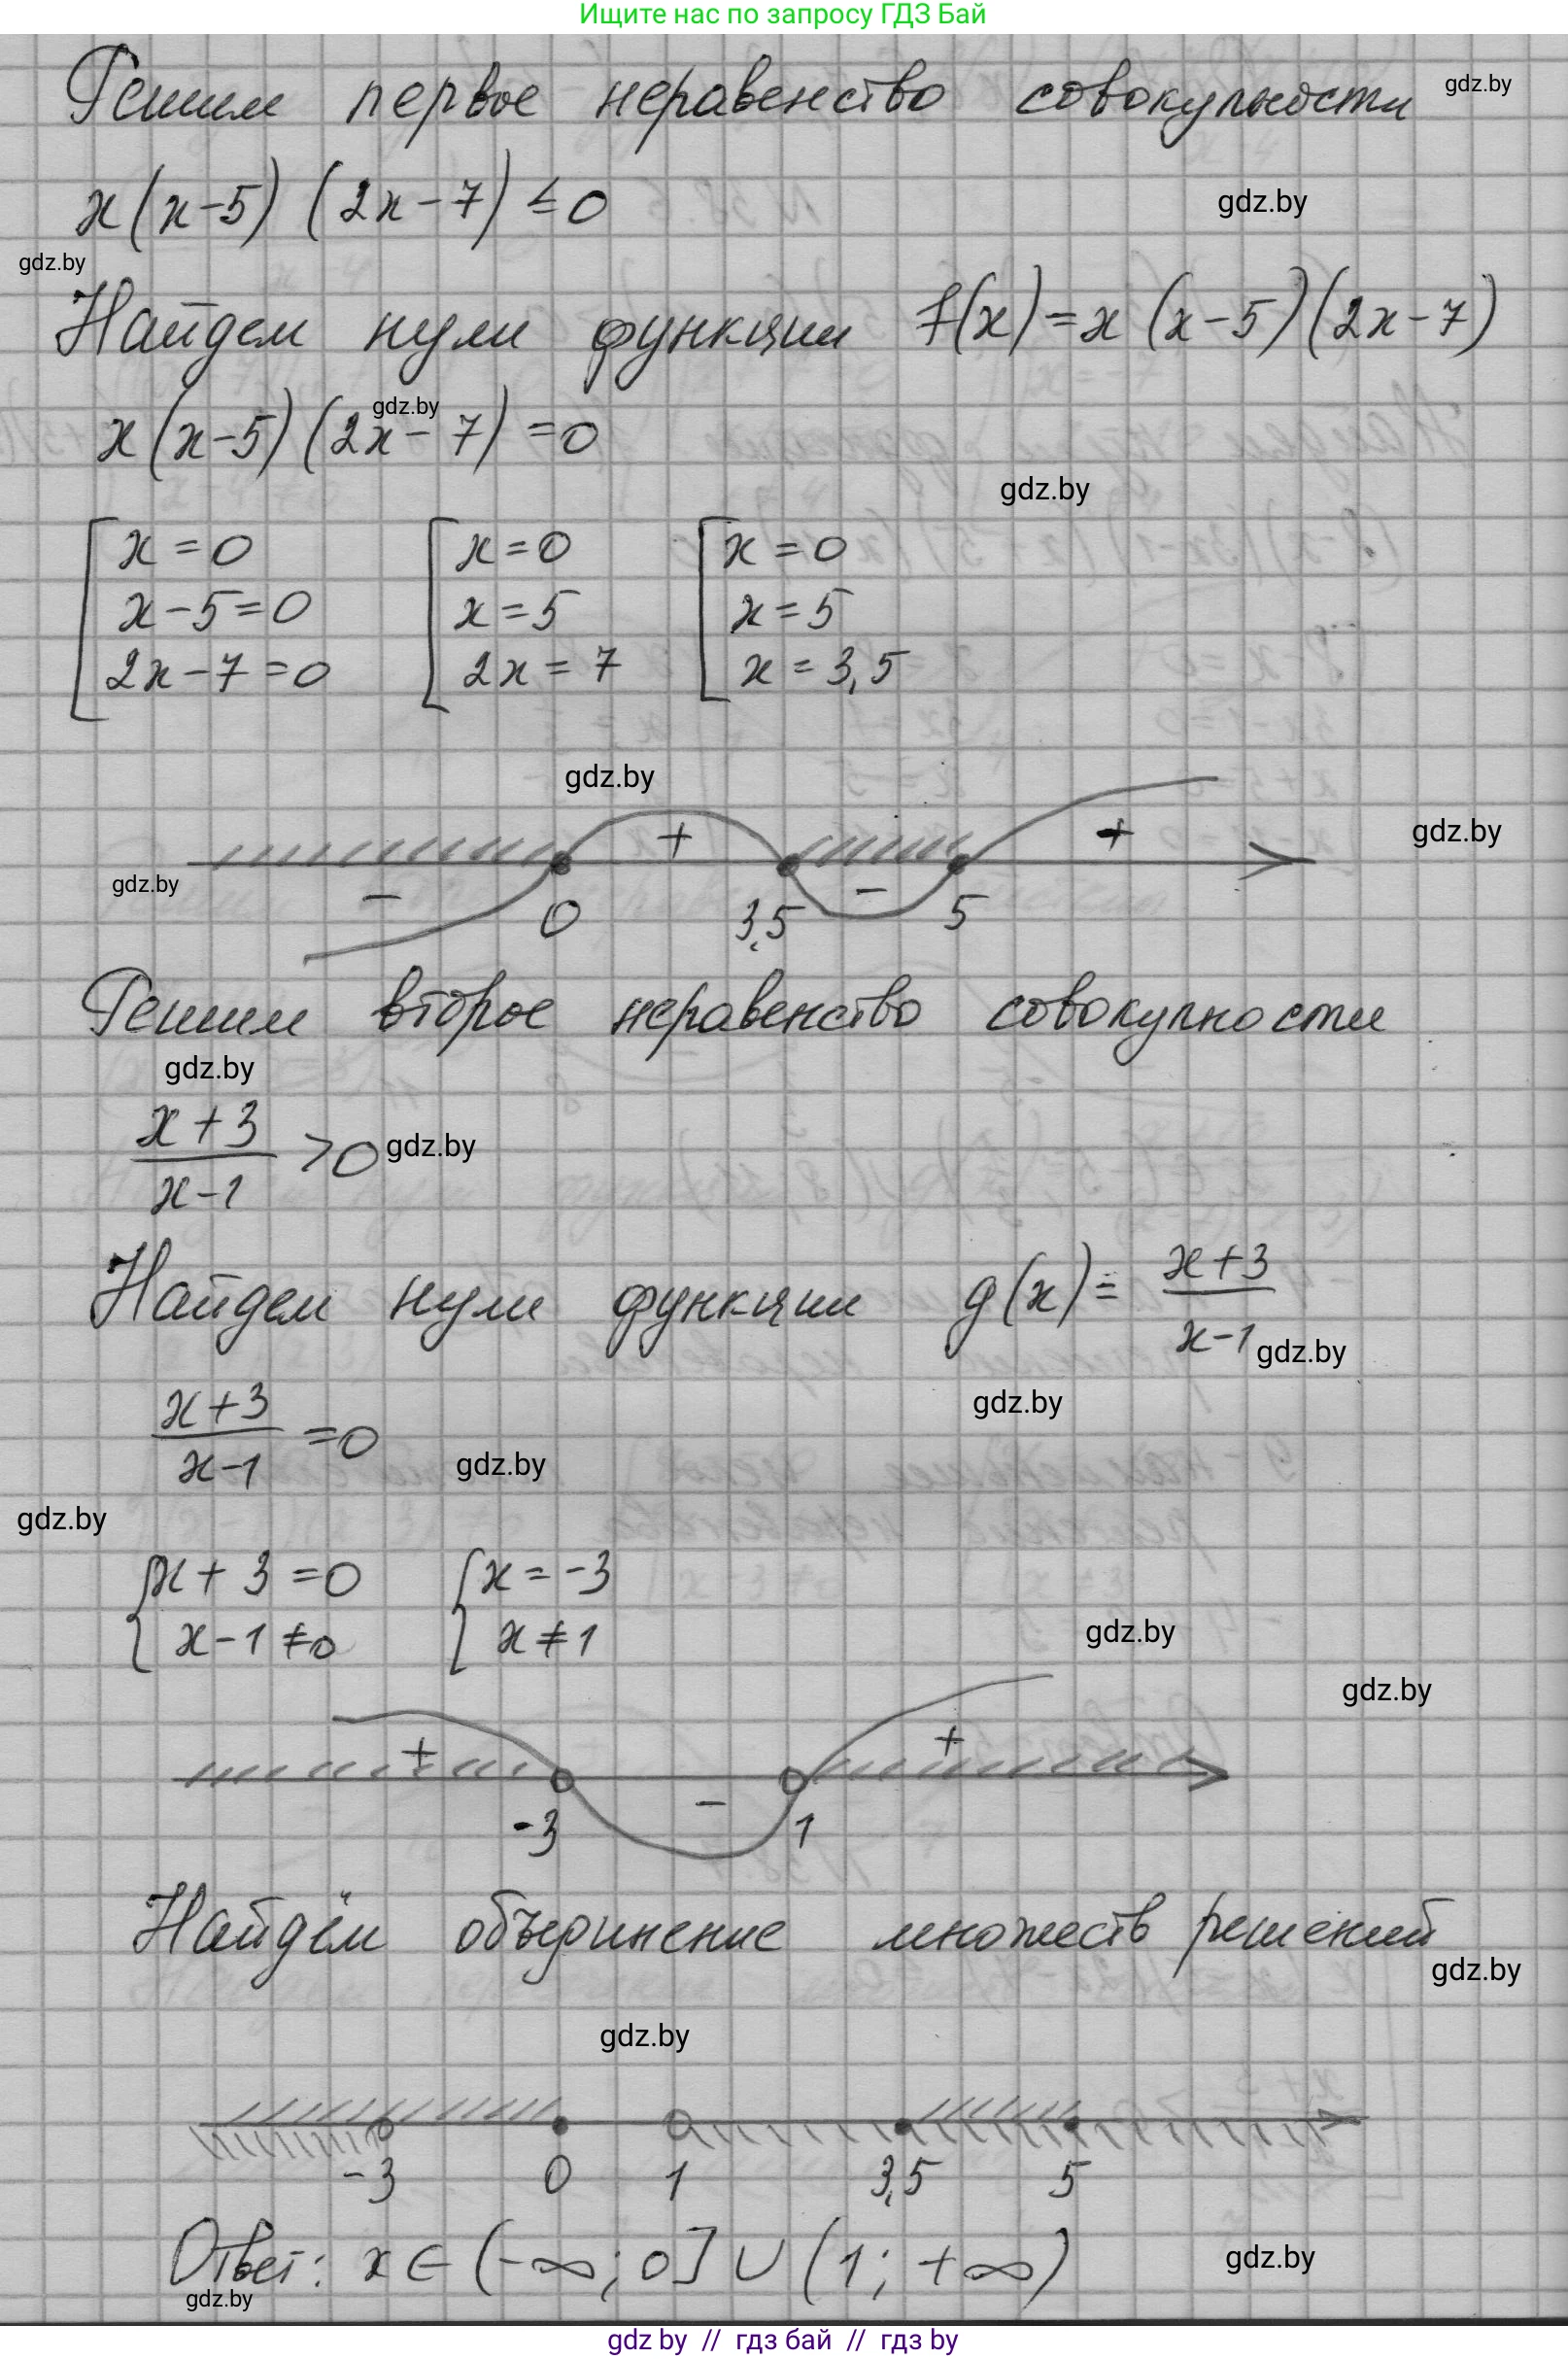 Ищите нас по запросу ГДЗ Бай
Решим первое неравенство совокупности
gdz.by
x(x-5)(2x-7)≤0
gdz.by
gdz.by
Найдем нули функции f(x)=x(x-5)(2x-7)
gdz.by
x(x-5)(2x-7)=0
gdz.by
x=0 x=0 x=0
x-5=0 x=5 x=5
2x-7=0 2x=7 x=3,5
gdz.by
+ + gdz.by
gdz.by - -
0 3,5 5
Решим второе неравенство совокупности
gdz.by
x+3/x-1 >0 gdz.by
Найдем нули функции g(x)= x+3/x-1
gdz.by
gdz.by
x+3/x-1 =0
gdz.by
gdz.by
x+3=0 x=-3
x-1≠0 x≠1
gdz.by
gdz.by
+ - +
-3 1
Найдём объединение множеств решений
gdz.by
gdz.by
-3 0 1 3,5 5
Ответ: x∈(-∞;0]∪(1;+∞)
gdz.by
gdz.by
gdz by // гдз бай // гдз by